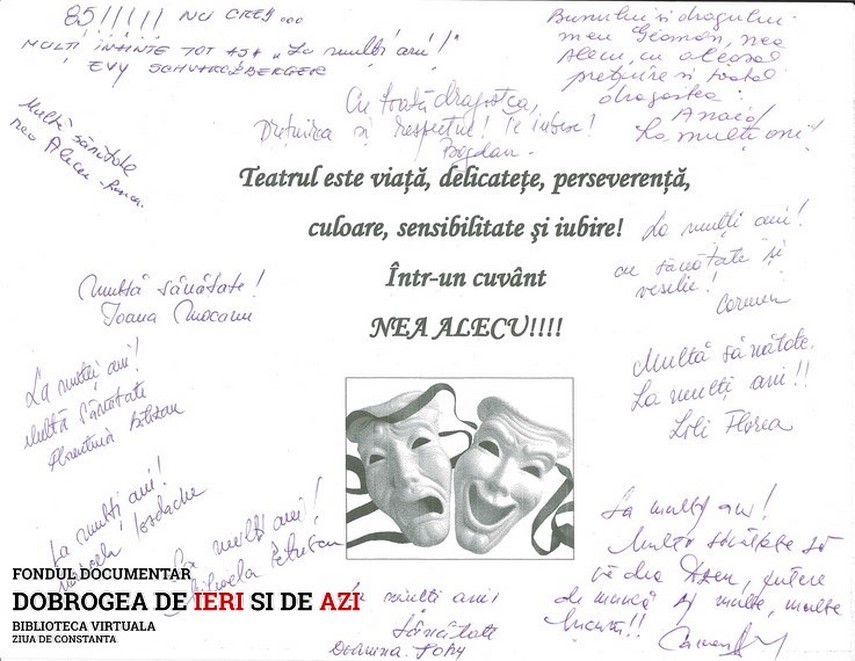 85!!!!! NU CRED...
MULȚI ÎNAINTE TOT AȘA „La mulți ani!”
EVY
Bunului și dragului
meu nea
Alecu, cu aleasă
prețuire și toată
dragostea!
La mulți ani!
Multă sănătate
nea Alecu
Cu toată dragostea,
Prețuirea și respectul! Te iubesc!
Bogdan
Teatrul este viață, delicatețe, perseverență,
culoare, sensibilitate și iubire!
Într-un cuvânt
NEA ALECU!!!!
La mulți ani!
cu sănătate și
veselie!
Carmen
Multă sănătate!
Ioana Mocanu
Multă sănătate.
La mulți ani!!
Lili Florea
La mulți ani!
Multă sănătate
Florentina
La mulți ani!
Iordache
La mulți ani!
La mulți ani!
Sănătate
La mulți ani!
Multă sănătate să
vă dea putere
de muncă și multe, multe
bucurii!!
FONDUL DOCUMENTAR
DOBROGEA DE IERI SI DE AZI
BIBLIOTECA VIRTUALA
ZIUA DE CONSTANTA